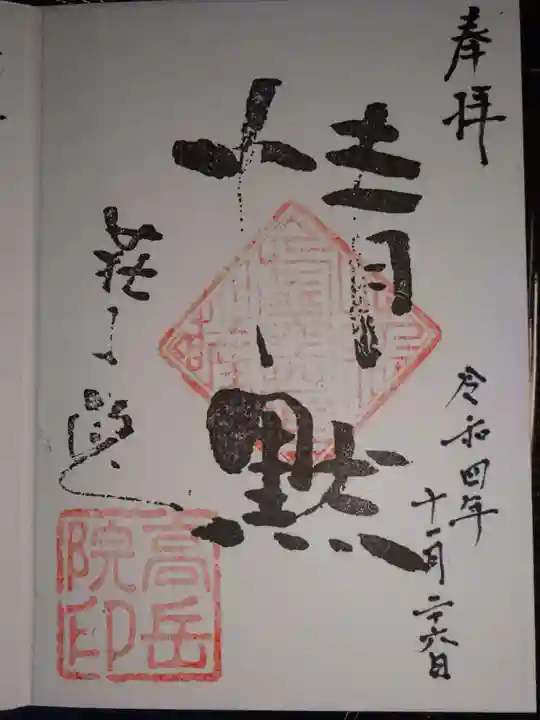 奉拝
令和四年
十一月二十六日
情
默
高岳
院印